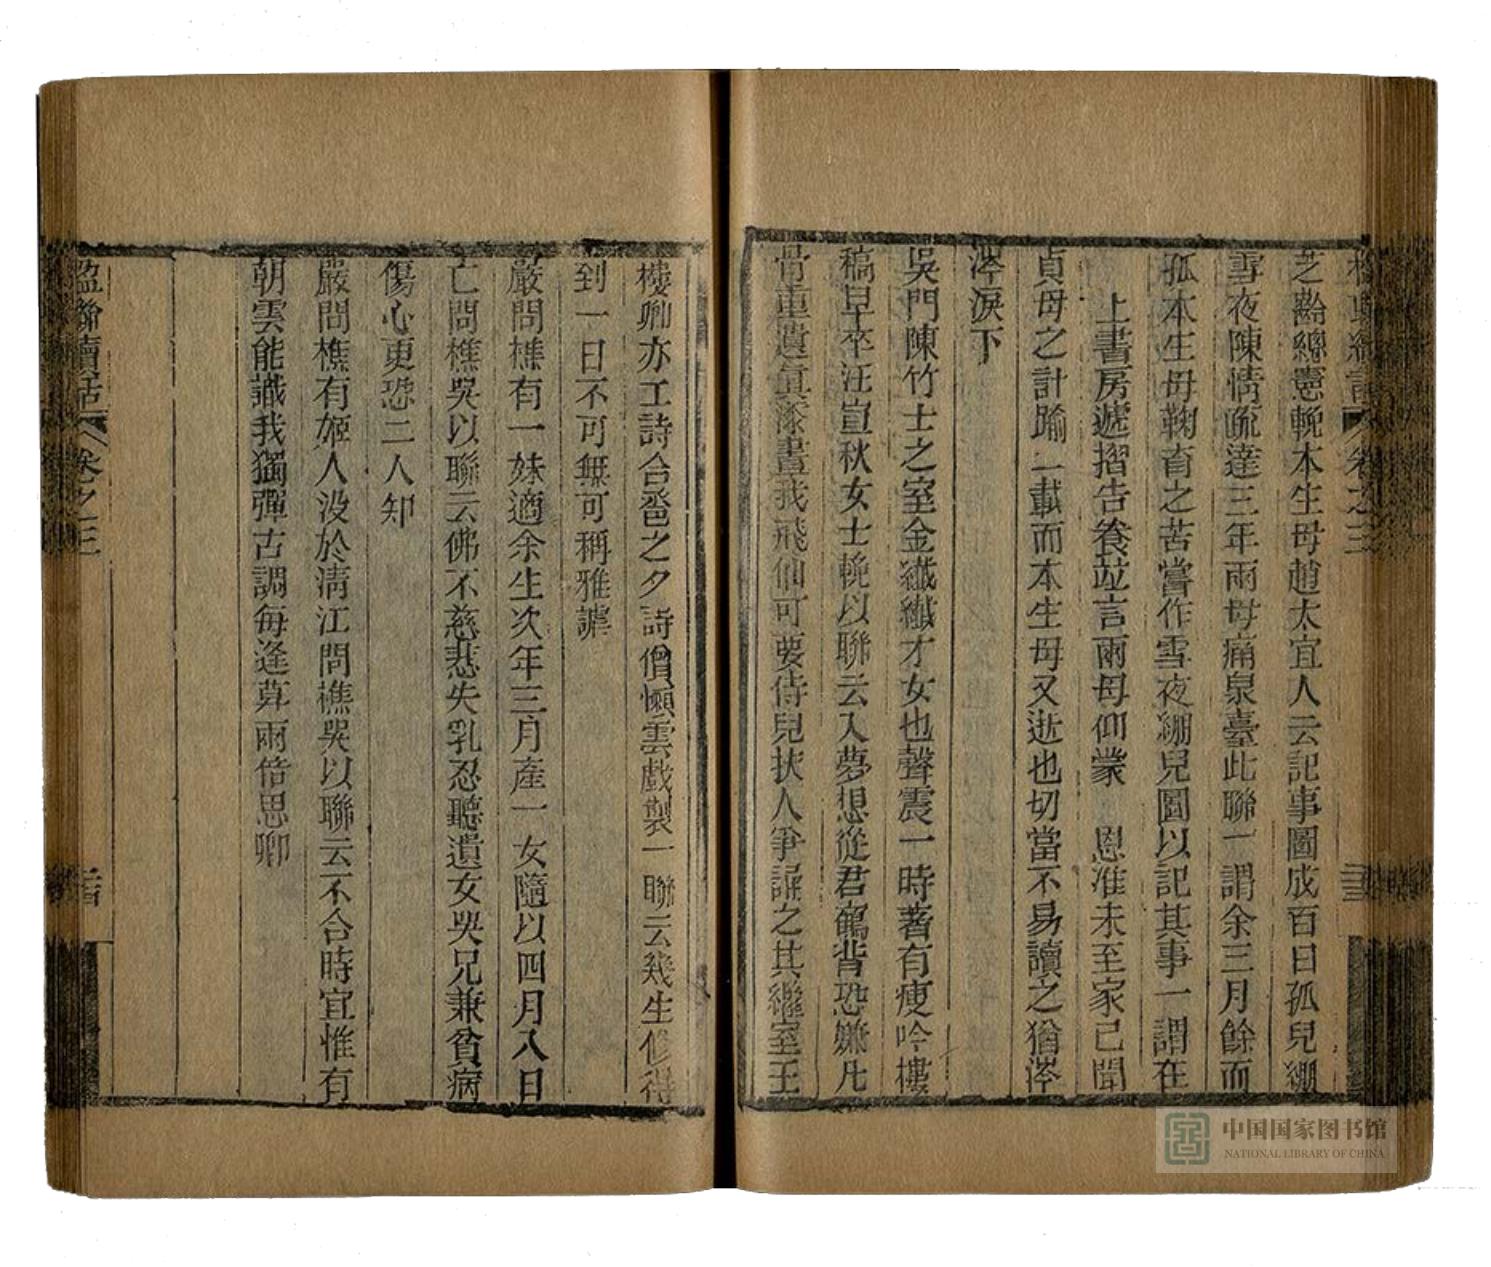 楹聯續話 卷之三
芝齡總憲輓本生母趙太宜人云記事圖成百日孤兒繃
雪夜陳情疏達三年兩母痛泉臺此聯一謂余三月餘而
孤本生母鞠育之苦嘗作雪夜繃兒圖以記其事一謂在
上書房遞摺告養竝言兩母仰蒙 恩准未至家已聞
貞母之訃踰一載而本生母又逝也切當不易讀之猶涔
涔淚下
吳門陳竹士之室金纖纖才女也聲震一時著有瘦吟樓
稿早卒汪宜秋女士輓以聯云入夢想從君鶴背恐嫌凡
骨重遺真添畫我飛仙可要侍兒扶人爭誦之其繼室王
樓卿亦工詩合巹之夕詩僧懶雲戲製一聯云幾生修得
到一日不可無可稱雅謔
嚴問樵有一妹適余生次年三月產一女隨以四月八日
亡問樵哭以聯云佛不慈悲失乳忍聽遺女哭兄兼貧病
傷心更恐二人知
嚴問樵有姬人沒於清江問樵哭以聯云不合時宜惟有
朝雲能識我獨彈古調每逢暮雨倍思卿
楹聯續話 卷之三
中国国家图书馆
NATIONAL LIBRARY OF CHINA